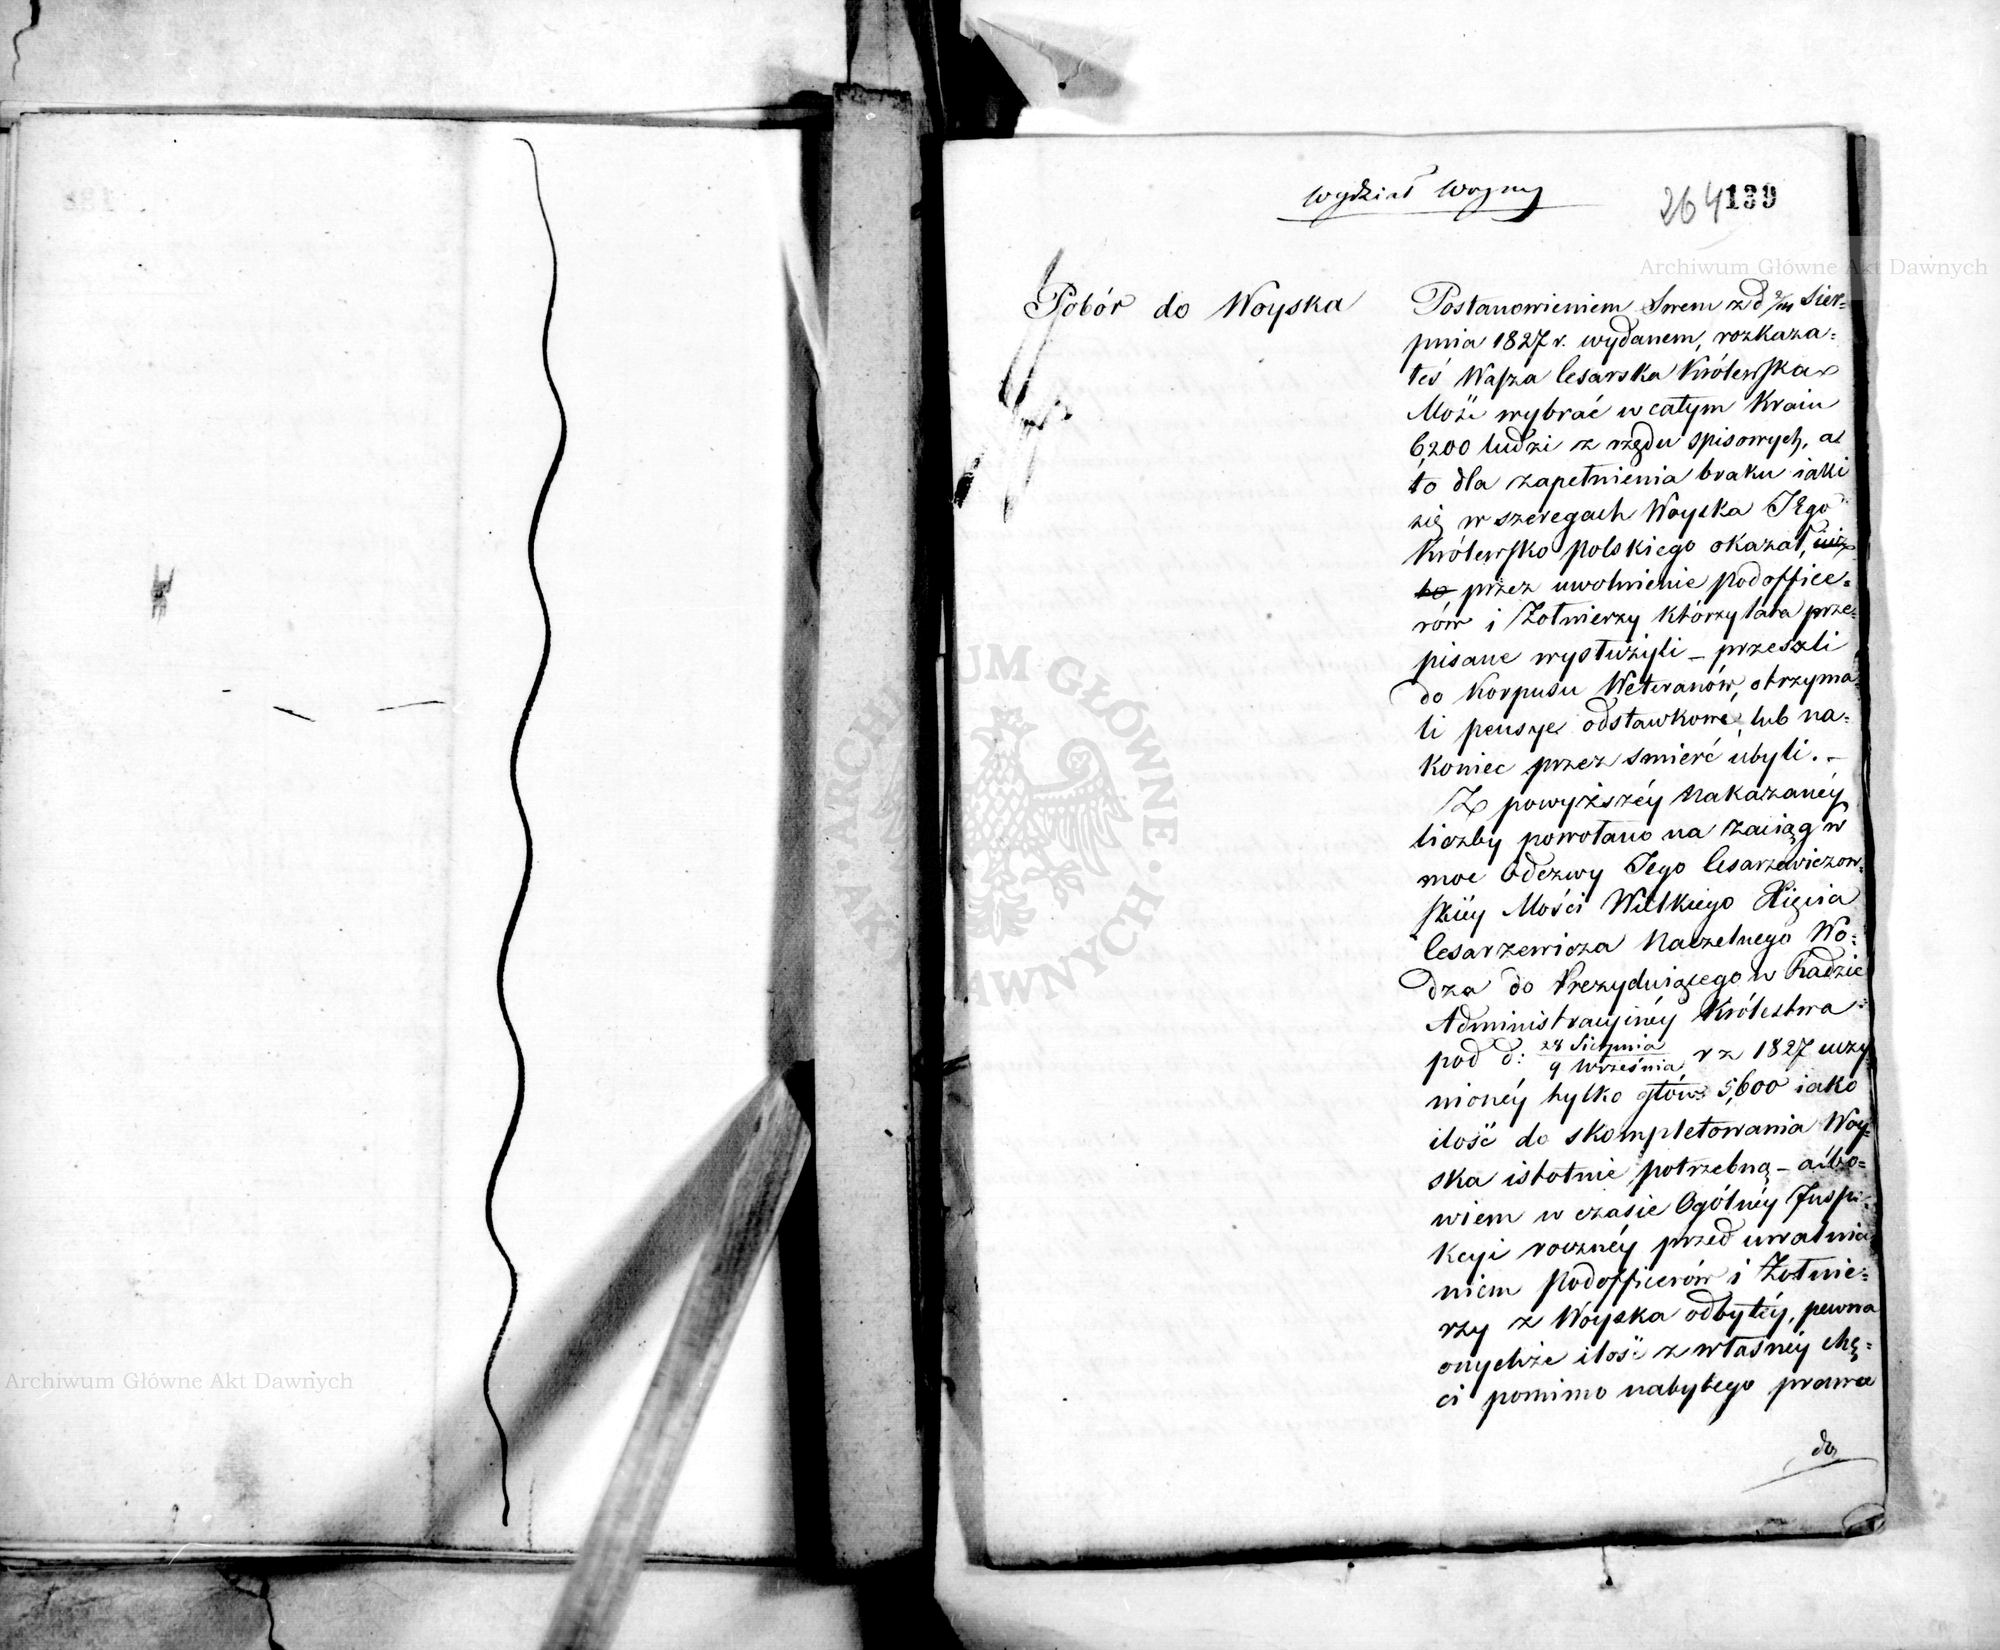 Wydział Woyny
264 139
Pobór do Woyska
Postanowieniem Swem z d 2/14 Sier=
pnia 1827 r. wydanem, rozkaza=
łeś Wasza Cesarska Królewska
Mość wybrać w całym Kraiu
6,200 ludzi z rzędu spisowych, a
to dla zapełnienia braku iaki
się w szeregach Woyska Jego
Królewsko Polskiego okazał,
to przez uwolnienie podoffice=
rów i Żołnierzy którzy lata prze=
pisane wysłużyli – przeszli
do Korpusu Weteranów, otrzyma=
li pensye odstawkowe, lub na=
koniec przez smierć ubyli. –
Z powyższéy nakazanéy
liczby powołano na zaciąg w
moc Odezwy Jego Cesarzewiczow=
skiéy Mości Wielkiego Xięcia
Cesarzewicza Naczelnego Wo=
dza do Prezyduiącego w Radzie
Administracyinéy Królestwa
pod d: 28 Sierpnia / 9 Września r z 1827 uczy
nionéy tylko głów 5,600 iako
ilość do skompletowania Woy=
ska istotnie potrzebną – albo=
wiem w czasie Ogólnéy Inspe=
kcyi rocznéy przed uwalnia
niem Podofficerów i Żołnie=
rzy z Woyska odbytéy, pewna
onychże ilość z własnéy chę=
ci pomimo nabytego prawa
do
Archiwum Główne Akt Dawnych
Archiwum Główne Akt Dawnych
ARCHIWUM GŁÓWNE AKT DAWNYCH